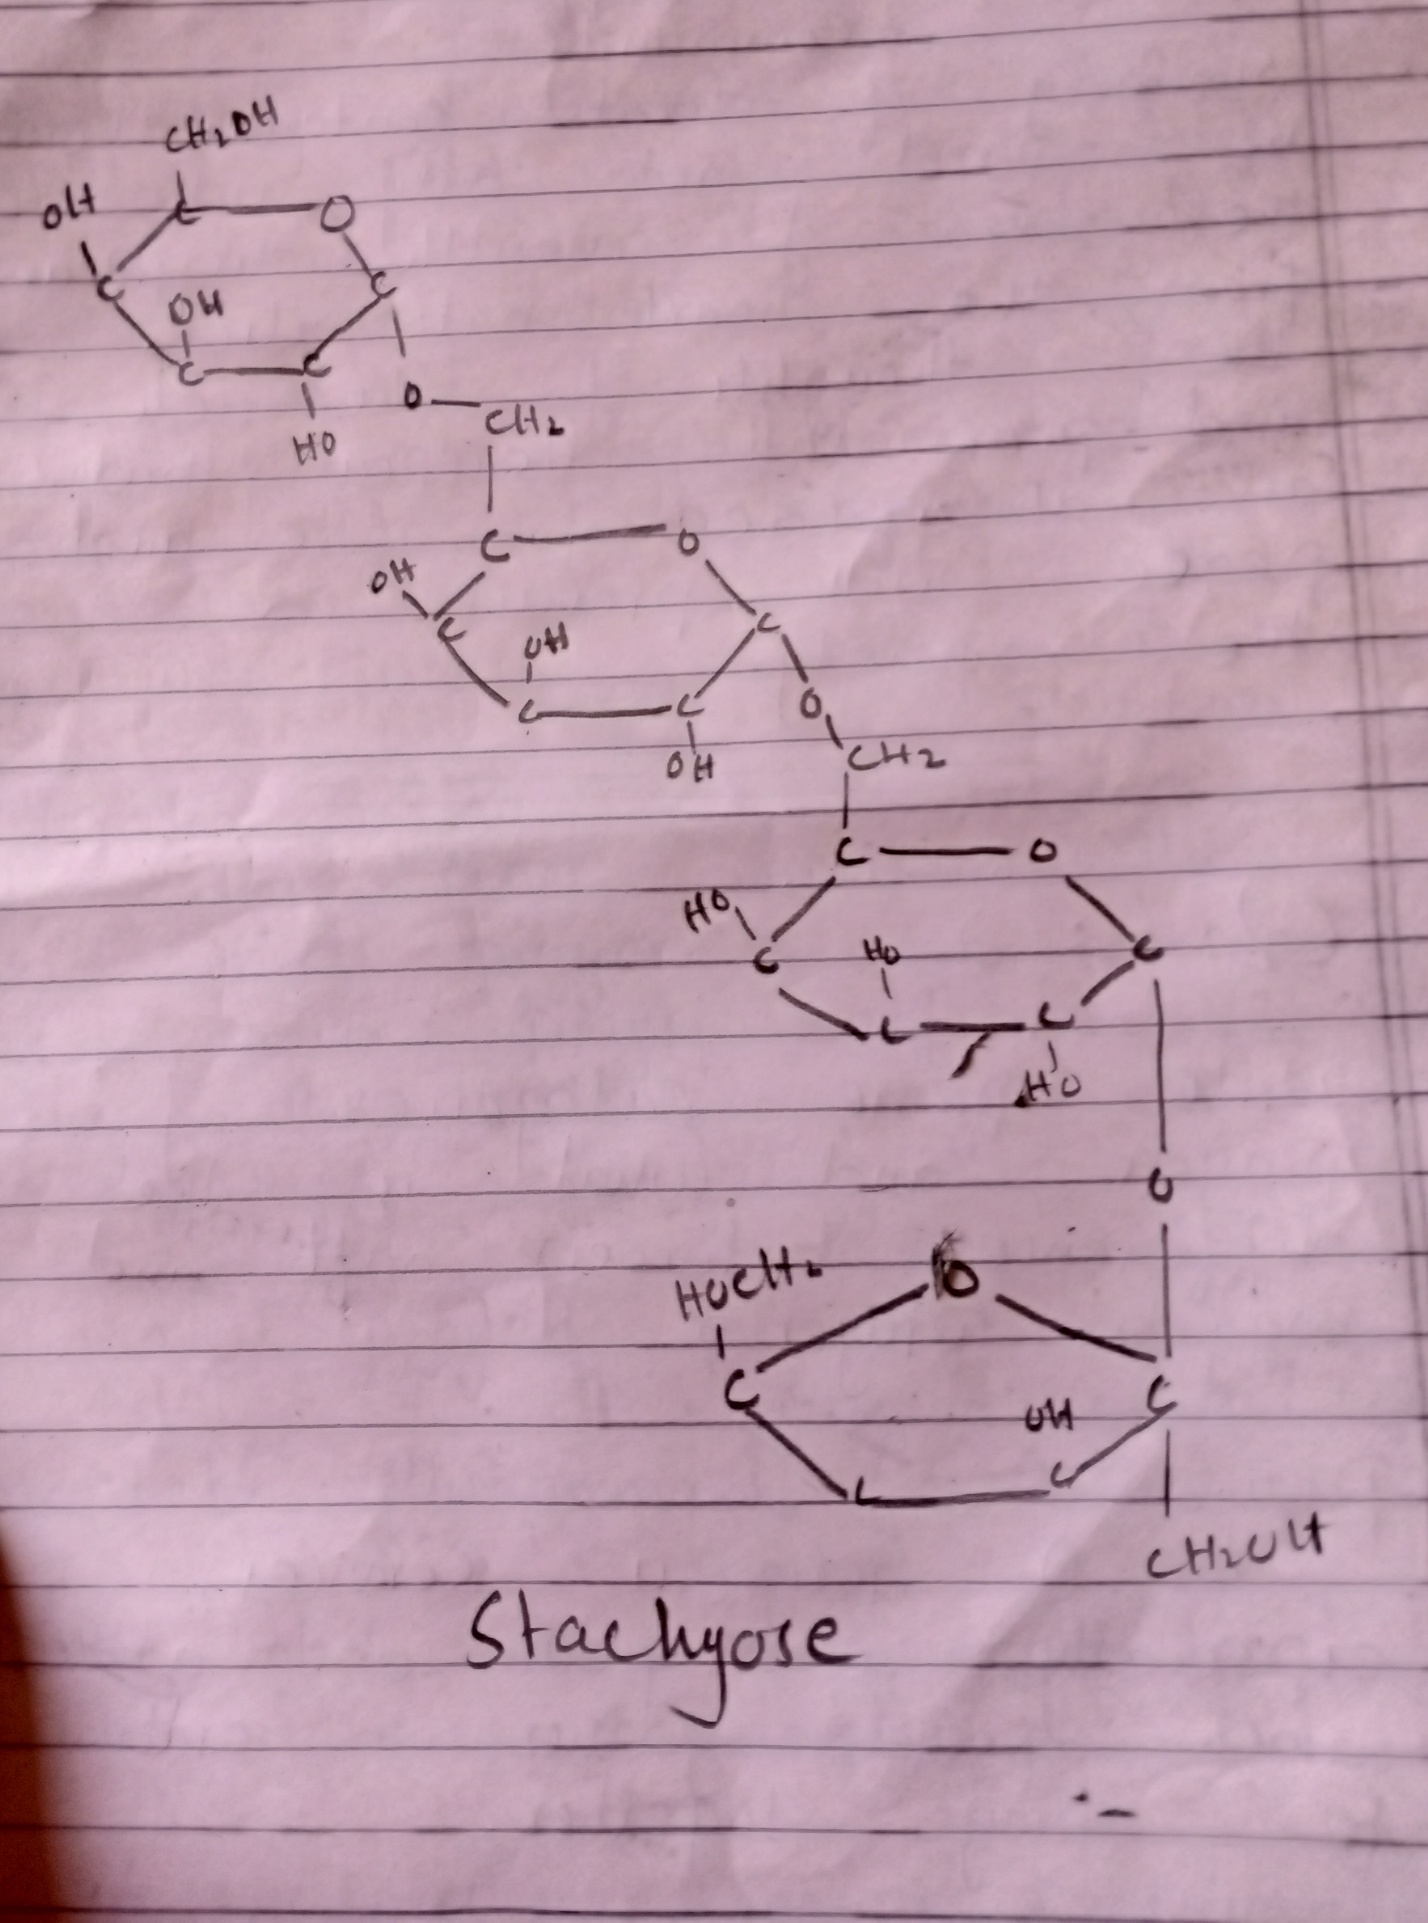 CH₂OH
OH
C O
C C
OH
C C
HO
O CH₂
C O
OH
C C
OH
C C
O
OH
CH₂
C O
HO
C C
HO
C C
HO
O
HOCH₂ O
C C
OH
C C
CH₂OH
Stachyose